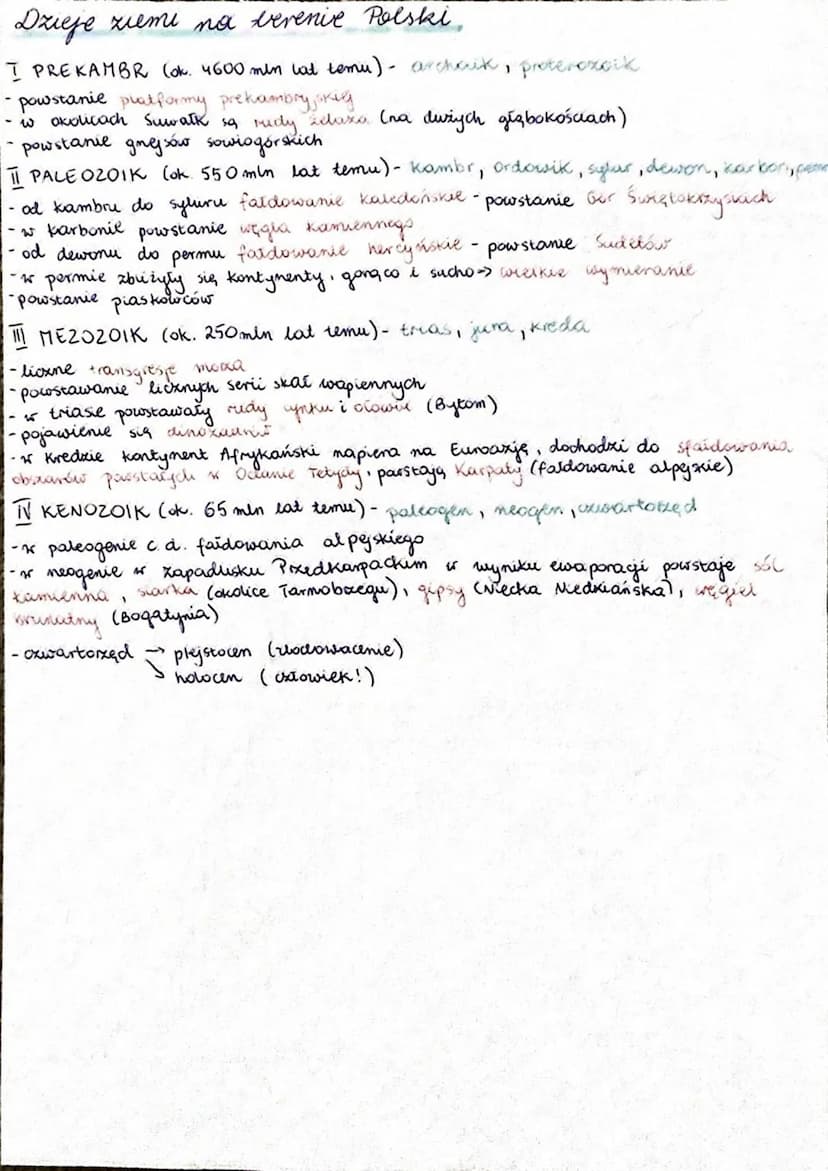 Dzieje ziemi na terenie Polski.
I PREKAMBR (ok. 4600 mln lat temu) - archaik, proterozoik
- powstanie platformy prekambryjskiej
- w okolicach Suwałk są rudy żelaza (na dużych głębokościach)
- powstanie gnejsów sowiogórskich
II PALEOZOIK (ok. 550 mln lat temu) - kambr, ordowik, sylur, dewon, karbon, perm
- od kambru do syluru fałdowanie kaledońskie - powstanie Gór Świętokrzyskich
- w karbonie powstanie węgla kamiennego
- od dewonu do permu fałdowanie hercyńskie - powstanie Sudetów
- w permie zbliżyły się kontynenty, gorąco i sucho => wielkie wymieranie
- powstanie piaskowców
III MEZOZOIK (ok. 250 mln lat temu) - trias, jura, kreda
- liczne transgresje morza
- powstawanie licznych serii skał wapiennych
- w triasie powstawały rudy cynku i ołowiu (Bytom)
- pojawienie się dinozaurów
- w kredzie kontynent Afrykański napiera na Euroazję, dochodzi do sfałdowania
obszarów powstałych w Oceanie Tetydy, powstają Karpaty (fałdowanie alpejskie)
IV KENOZOIK (ok. 65 mln lat temu) - paleogen, neogen, czwartorzęd
- w paleogenie c.d. fałdowania alpejskiego
- w neogenie w Zapadlisku Przedkarpackim w wyniku ewaporacji powstaje sól
kamienna, siarka (okolice Tarnobrzegu), gipsy (Niecka Niedziańska), węgiel
brunatny (Bogatynia)
- czwartorzęd → plejstocen (zlodowacenie)
↘ holocen (człowiek!)